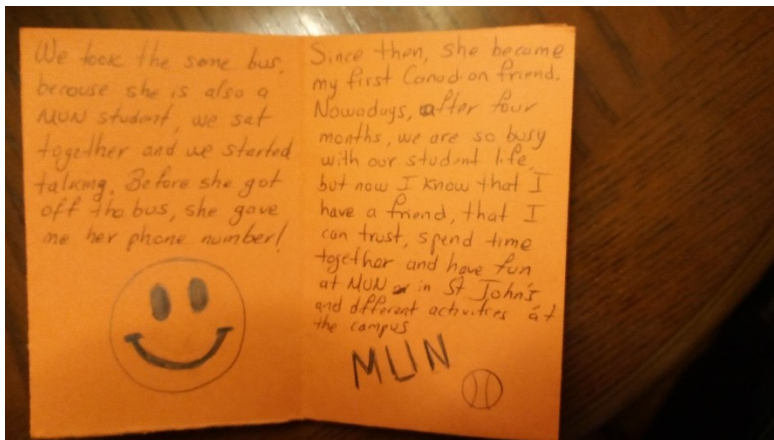 We took the same bus,
because she is also a
MUN student, we sat
together and we started
talking. Before she got
off the bus, she gave
me her phone number!
Since then, she became
my first Canadian friend.
Nowadays, after four
months, we are so busy
with our student life,
but now I know that I
have a friend, that I
can trust, spend time
together and have fun
at MUN or in St John's
and different activities at
the campus
MUN